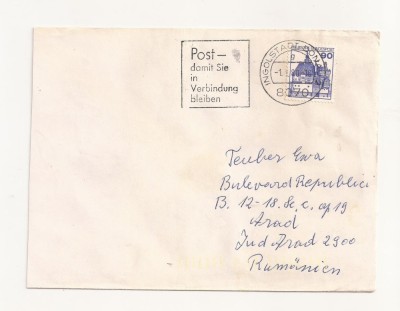 Post –
damit Sie
in
Verbindung
bleiben
INGOLSTADT, DONAU
8070
90
Teuber Ewa
Bulevard Republicii
B. 12-18. sc. c, op 19
Arad
Jud Arad 2900
Rumänien